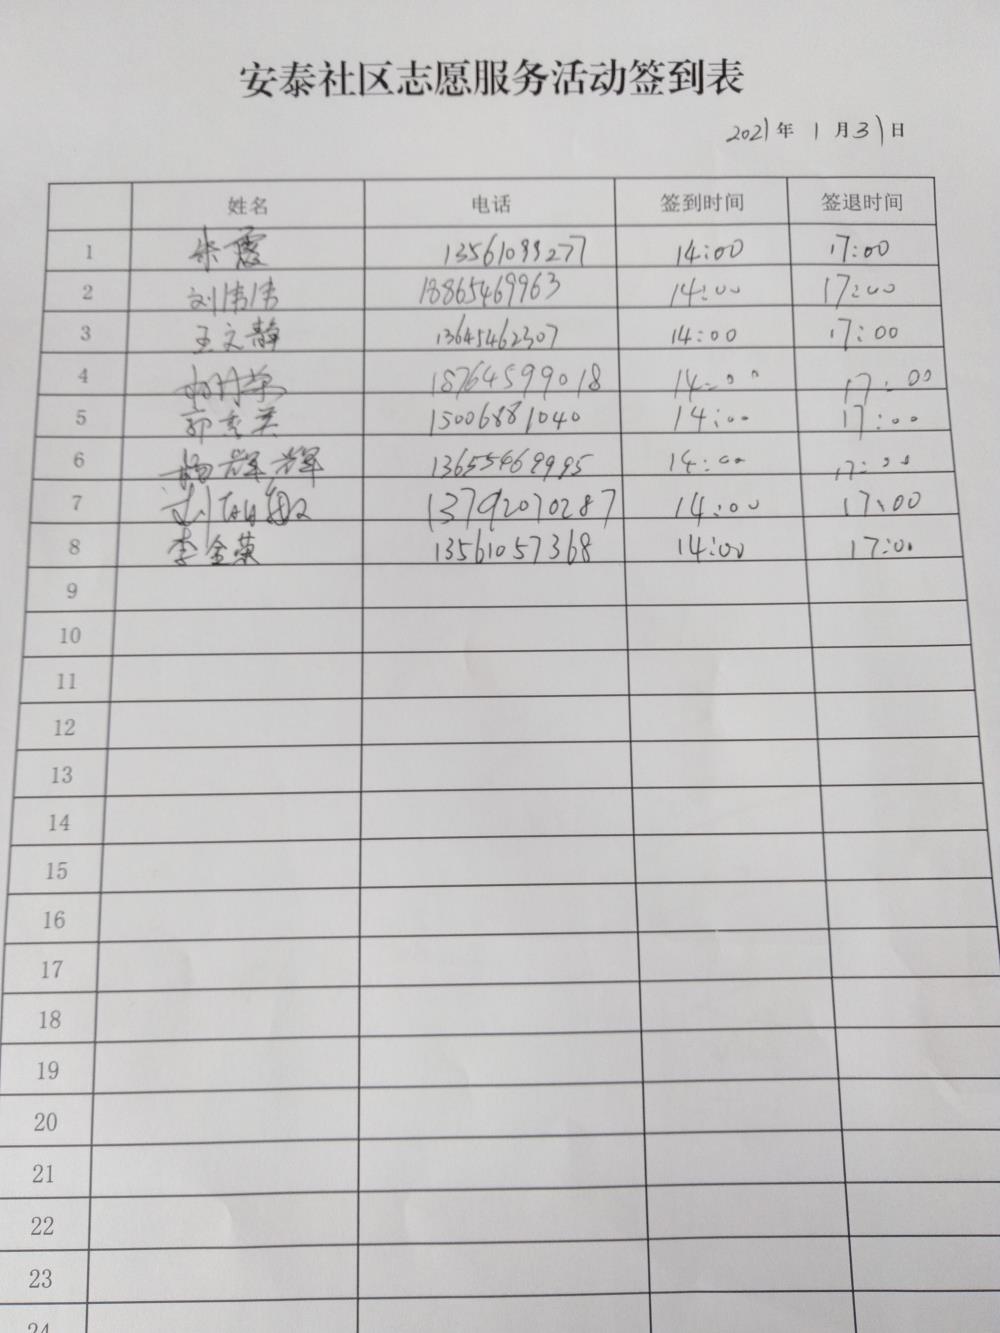 安泰社区志愿服务活动签到表
2021年 1月31日
姓名 电话 签到时间 签退时间
1 朱霞 13561099277 14:00 17:00
2 刘伟伟 18865469963 14:00 17:00
3 王文静 13645462307 14:00 17:00
4 18764599018 14:00 17:00
5 郭秀英 15006881040 14:00 17:00
6 杨辉辉 13655469995 14:00 17:00
7 刘 13792070287 14:00 17:00
8 李金英 13561057368 14:00 17:00
9
10
11
12
13
14
15
16
17
18
19
20
21
22
23
24